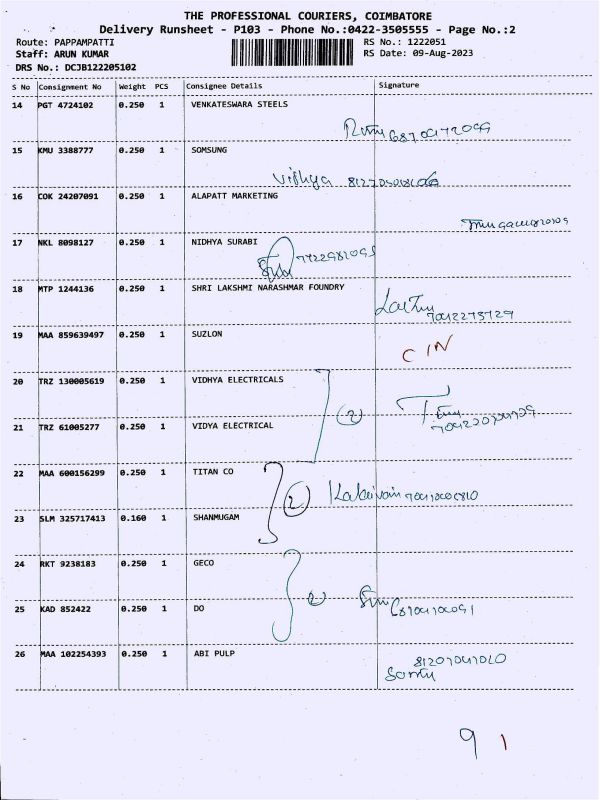 THE PROFESSIONAL COURIERS, COIMBATORE
Delivery Runsheet - P103 - Phone No.:0422-3505555 - Page No.:2
Route: PAPPAMPATTI RS No.: 1222051
Staff: ARUN KUMAR RS Date: 09-Aug-2023
DRS No.: DCJB122205102
S No Consignment No Weight PCS Consignee Details Signature
14 PGT 4724102 0.250 1 VENKATESWARA STEELS
15 KMU 3388777 0.250 1 SOMSUNG
Vidhya
16 COK 24207091 0.250 1 ALAPATT MARKETING
17 NKL 8098127 0.250 1 NIDHYA SURABI
18 MTP 1244136 0.250 1 SHRI LAKSHMI NARASHMAR FOUNDRY
19 MAA 859639497 0.250 1 SUZLON
C IN
20 TRZ 130005619 0.250 1 VIDHYA ELECTRICALS
2
21 TRZ 61005277 0.250 1 VIDYA ELECTRICAL
22 MAA 600156299 0.250 1 TITAN CO
2
23 SLM 325717413 0.160 1 SHANMUGAM
24 RKT 9238183 0.250 1 GECO
2
25 KAD 852422 0.250 1 DO
26 MAA 102254393 0.250 1 ABI PULP
9 1